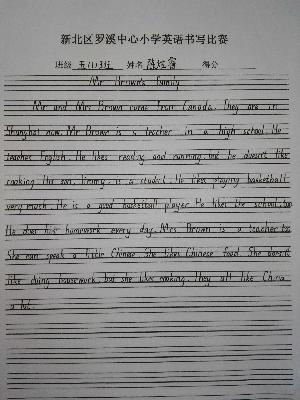 新北区罗溪中心小学英语书写比赛
班级 五(1)班 姓名 陈 得分
Mr Brown's family
Mr and Mrs Brown come from Canada. They are in
Shanghai now. Mr Brown is a teacher in a high school. He
teaches English. He likes reading and running, but he doesn't like
cooking. His son, Jimmy, is a student. He likes playing basketball
very much. He is a good basketball player. He likes the school, too.
He does his homework every day. Mrs Brown is a teacher, too.
She can speak a little Chinese. She likes Chinese food. She doesn't
like doing housework, but she likes They all like China
a lot.